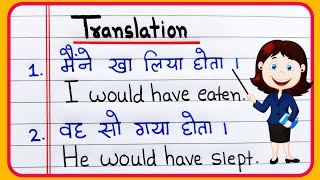 Translation
1. मैंने खा लिया होता ।
I would have eaten.
2. वह सो गया होता ।
He would have slept.